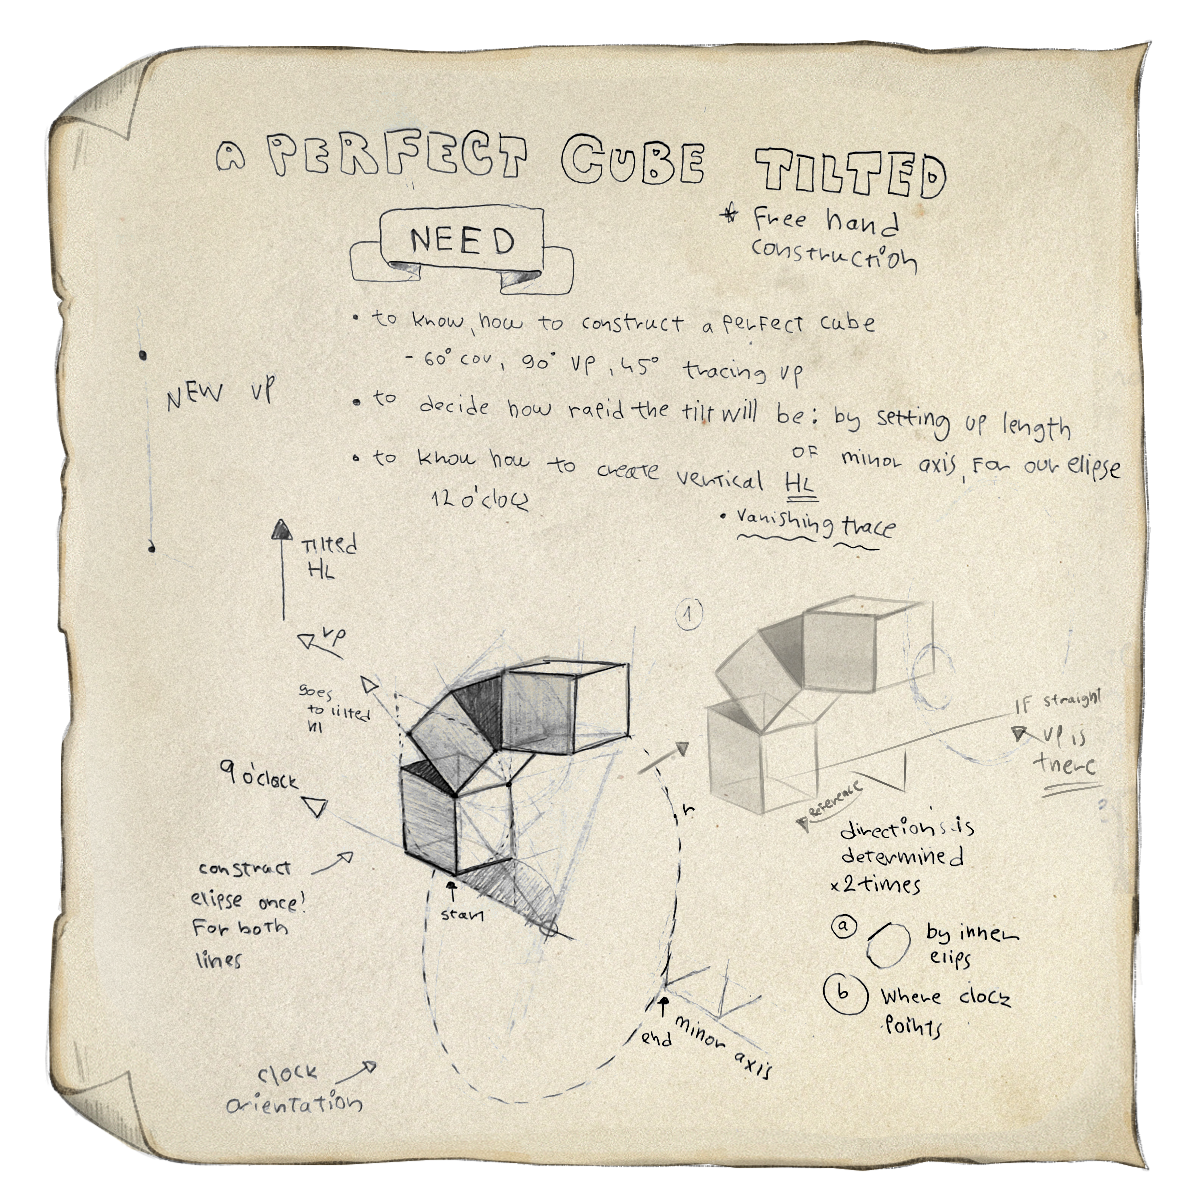 A PERFECT CUBE TILTED
* Free hand
construction
NEED
• to know how to construct a perfect cube
- 60° cov, 90° VP, 45° tracing vp
NEW VP
• to decide how rapid the tilt will be: by setting up length
OF minor axis, For our elipse
• to know how to create vertical HL
12 o'clock
• vanishing trace
Tilted
HL
VP
goes
to tilted
hl
1
IF straight
VP is
there
reference
9 o'clock
r
directions is
determined
x2 times
construct
elipse once!
For both
lines
start
a by inner
elips
b Where clock
points
end
minor axis
clock
orientation